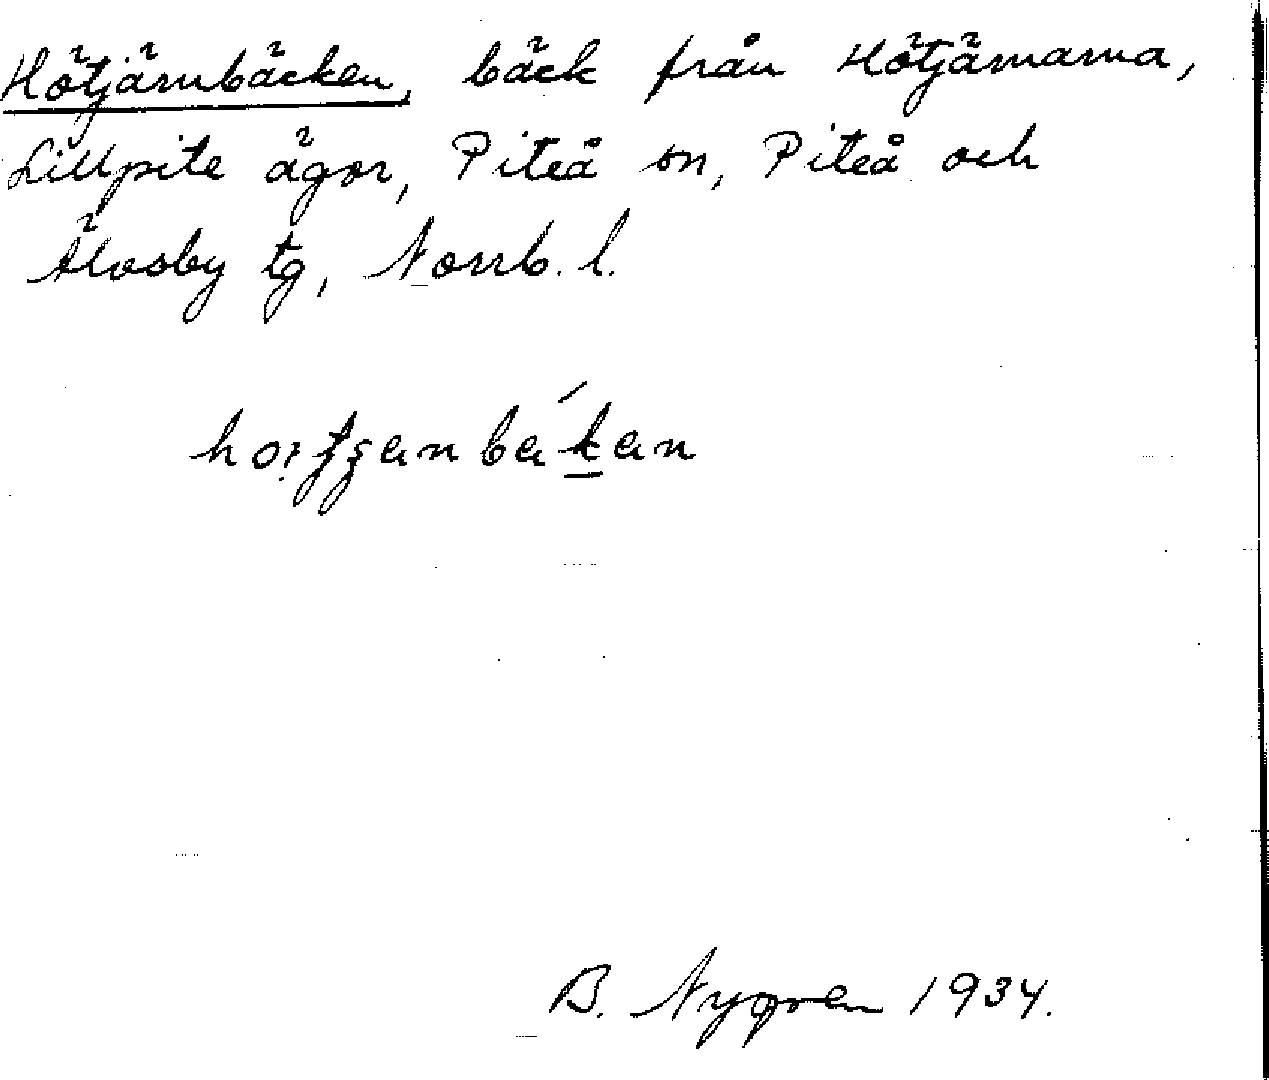 Hötjärnbäcken, bäck från Hötjärnarna,
Lillpite ägor, Piteå sn, Piteå och
Älvsby tg, Norrb. l.
B. Nygren 1934.